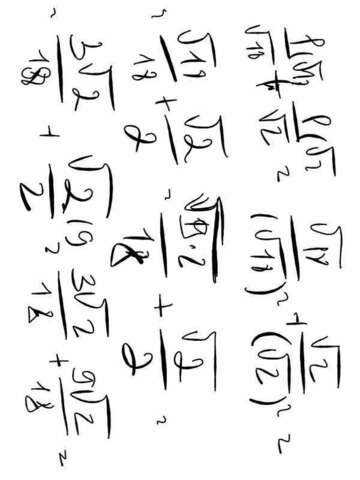 1(√18/√18 + 1(√2/√2 = √18/(√18)² + √2/(√2)² =
= √18/18 + √2/2 = √9·2/18 + √2/2 =
= 3√2/18 + √2/2 (9 = 3√2/18 + 9√2/18 =